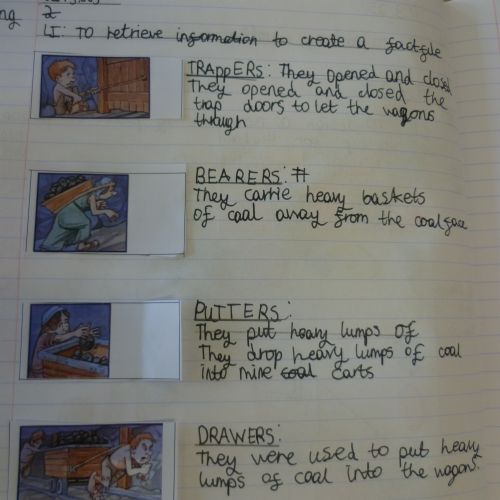 ng
LI: To retrieve information to create a factfile
TRAPPERS: They opened and closed
They opened and closed the
trap doors to let the wagons
through
BEARERS:
They carrie heavy baskets
of coal away from the coalface
PUTTERS:
They put heavy lumps of
They drop heavy lumps of coal
into mine coal carts
DRAWERS:
They were used to put heavy
lumps of coal into the wagons.